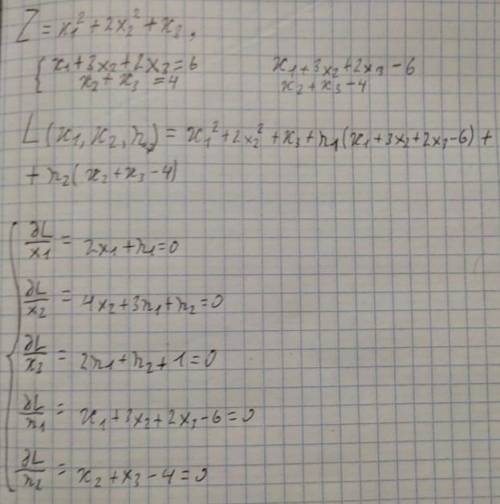 Z = x₁² + 2x₂² + x₃,
{ x₁ + 3x₂ + 2x₃ = 6 x₁ + 3x₂ + 2x₃ - 6
x₂ + x₃ = 4 x₂ + x₃ - 4
L(x₁, x₂, n₂) = x₁² + 2x₂² + x₃ + n₁(x₁ + 3x₂ + 2x₃ - 6) +
+ n₂(x₂ + x₃ - 4)
∂L/x₁ = 2x₁ + n₁ = 0
∂L/x₂ = 4x₂ + 3n₁ + n₂ = 0
∂L/x₃ = 2n₁ + n₂ + 1 = 0
∂L/n₁ = x₁ + 3x₂ + 2x₃ - 6 = 0
∂L/n₂ = x₂ + x₃ - 4 = 0